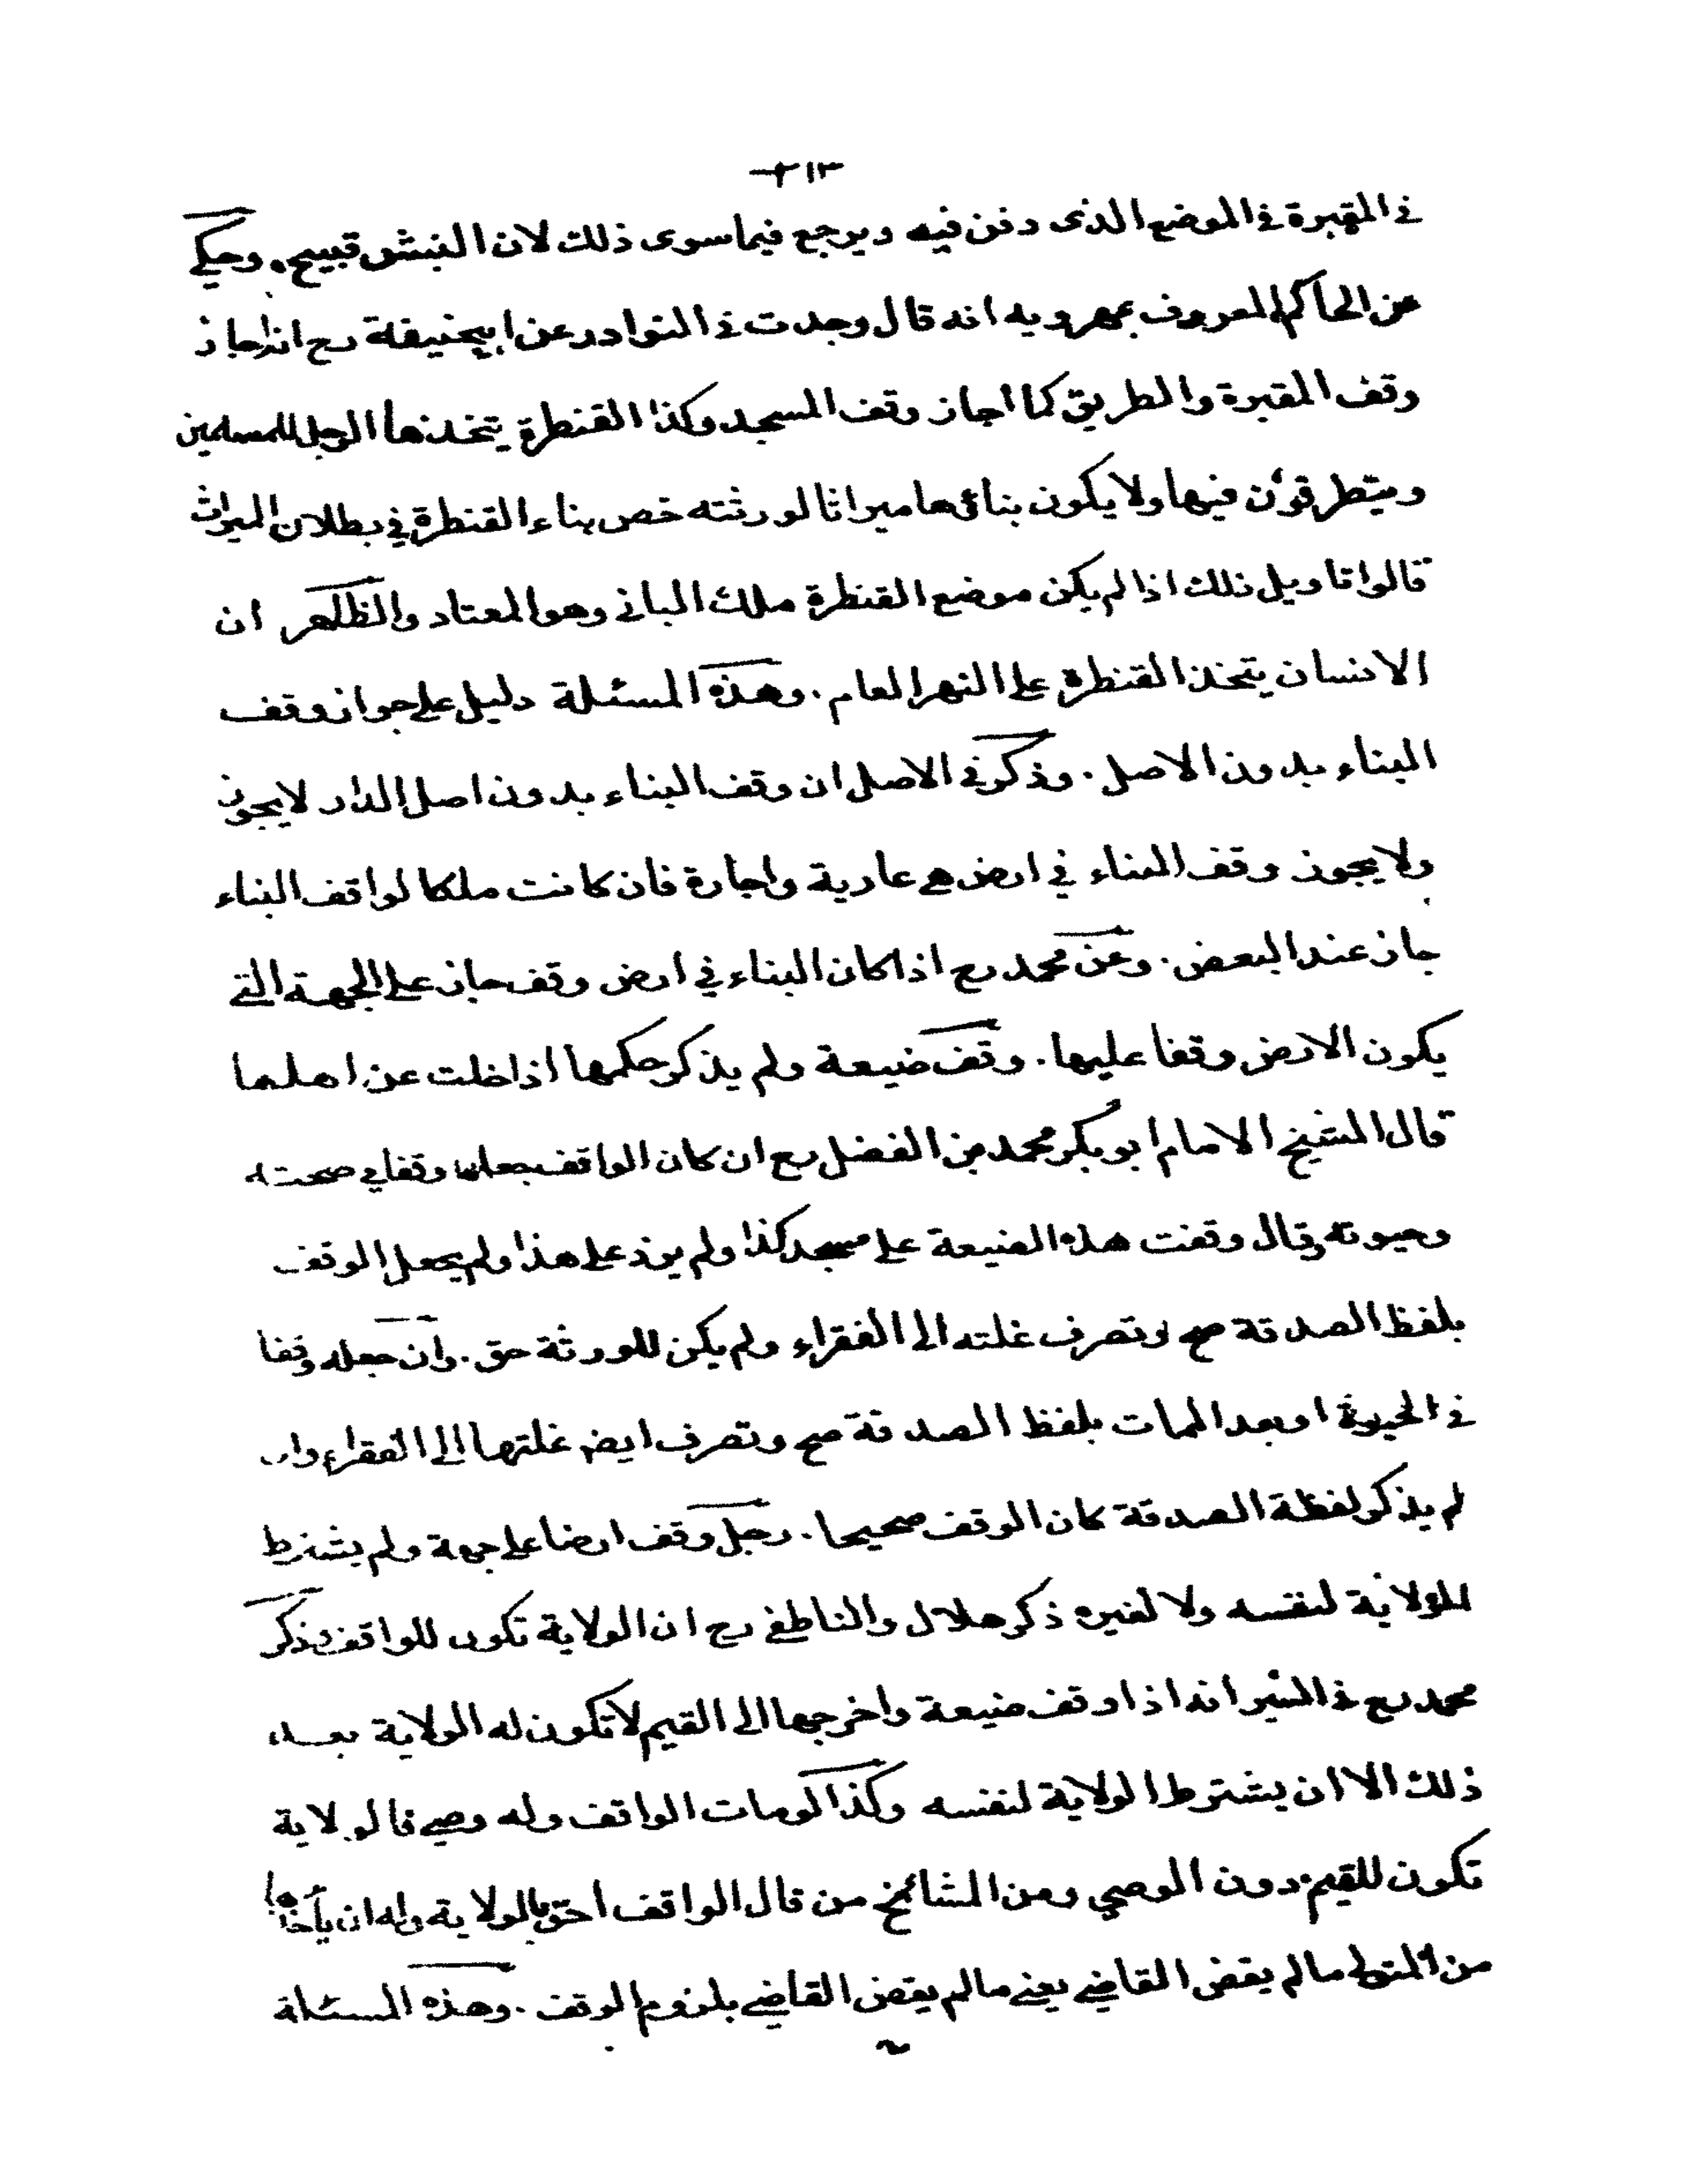 ٢١٣
في المقبرة في الموضع الذي دفن فيه ويرجع فيما سوى ذلك لان النبش قبيح. وحكي
عن الحاكم المعروف بمهرويه انه قال وجدت في النوادر عن ابيحنيفة رح انه اجاز
وقف المقبرة والطريق كما اجاز وقف المسجد وكذا القنطرة يتخذها الرجل للمسلمين
ويتطرقون فيها ولا يكون بنائها ميراثا لورثته خص بناء القنطرة في بطلان الميراث
قالوا تاويل ذلك اذا لم يكن موضع القنطرة ملك الباني وهو المعتاد والظاهر ان
الانسان يتخذ القنطرة على النهر العام. وهذه المسئلة دليل على جواز وقف
البناء بدون الاصل. وذكر في الاصل ان وقف البناء بدون اصل الدار لا يجوز
ولا يجوز وقف البناء في ارض هي عارية واجارة فان كانت ملكا لواقف البناء
جاز عند البعض. وعن محمد رح اذا كان البناء في ارض وقف جاز على الجهة التي
يكون الارض وقفا عليها. وقف ضيعة ولم يذكر حكمها اذا خلت عن اهلها
قال الشيخ الامام ابو بكر محمد بن الفضل رح ان كان الواقف جعلها وقفا في صحته
وحيوته وقال وقفت هذه الضيعة على مسجد كذا ولم يزد على هذا ولم يجعل الوقف
بلفظ الصدقة صح وتصرف غلته الى الفقراء ولم يكن للورثة حق. وان جعله وقفا
في الحيوة او بعد الممات بلفظ الصدقة صح وتصرف ايضا غلتها الى الفقراء وان
لم يذكر لفظة الصدقة كان الوقف صحيحا. رجل وقف ارضا على جهة ولم يشترط
الولاية لنفسه ولا لغيره ذكر هلال والناطفي رح ان الولاية تكون للواقف وذكر
محمد رح في السير انه اذا وقف ضيعة واخرجها الى القيم لا تكون له الولاية بعد
ذلك الا ان يشترط الولاية لنفسه وكذا لو مات الواقف وله وصي فالولاية
تكون للقيم دون الوصي ومن المشائخ من قال الواقف احق بالولاية وله ان يأخذها
من المتولي ما لم يقض القاضي يعني ما لم يقض القاضي بلزوم الوقف. وهذه المسئلة